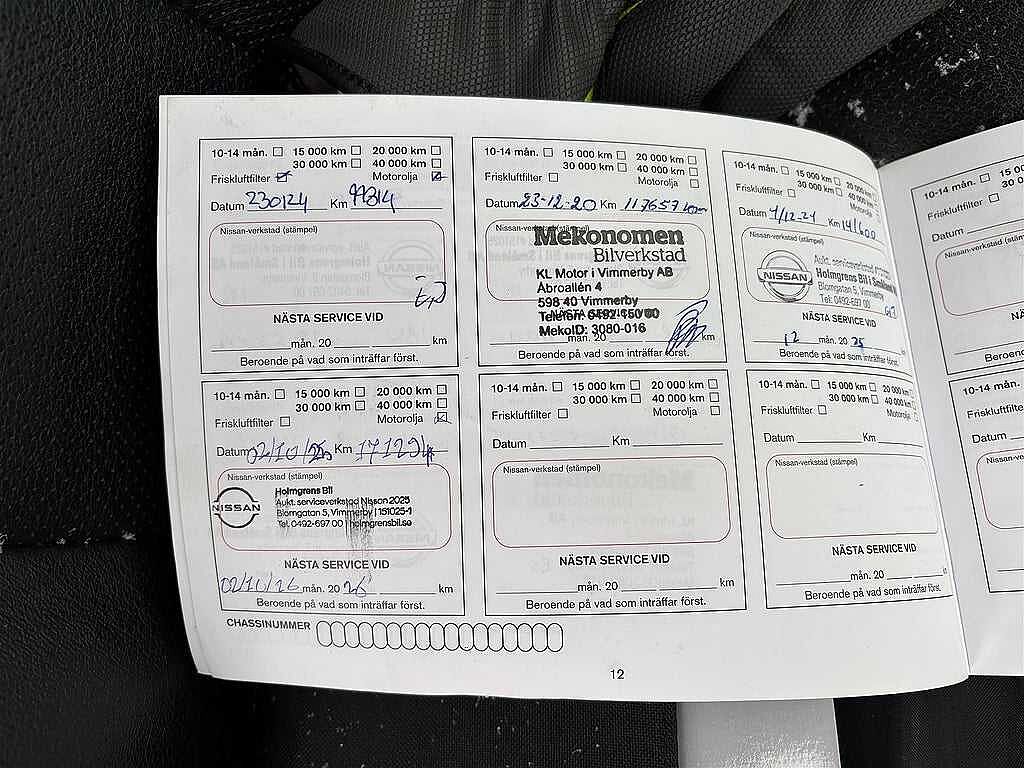 10-14 mån. 15 000 km 20 000 km
30 000 km 40 000 km
Friskluftfilter Motorolja
Datum 230124 Km 99814
Nissan-verkstad (stämpel)
NÄSTA SERVICE VID
mån. 20 km
Beroende på vad som inträffar först.
10-14 mån. 15 000 km 20 000 km
30 000 km 40 000 km
Friskluftfilter Motorolja
Datum 23-12-20 Km 117657 km
Nissan-verkstad (stämpel)
Mekonomen
Bilverkstad
KL Motor i Vimmerby AB
Åbroallén 4
598 40 Vimmerby
Telefon: 0492-150 00
MekoID: 3080-016
NÄSTA SERVICE VID
mån. 20 km
Beroende på vad som inträffar först.
10-14 mån. 15 000 km 20 000 km
30 000 km 40 000 km
Friskluftfilter Motorolja
Datum 4/12-24 Km 141600
Nissan-verkstad (stämpel)
NISSAN
Aukt. serviceverkstad
Holmgrens Bil i Småland AB
Blomgatan 5, Vimmerby
Tel: 0492-697 00
NÄSTA SERVICE VID
12 mån. 20 25
Beroende på vad som inträffar först.
10-14 mån. 15 000 km 20 000 km
30 000 km 40 000 km
Friskluftfilter Motorolja
Datum 02/10/25 Km 171294
Nissan-verkstad (stämpel)
NISSAN
Holmgrens Bil
Aukt. serviceverkstad Nissan 2025
Blomgatan 5, Vimmerby | 151025-1
Tel. 0492-697 00 | holmgrensbil.se
NÄSTA SERVICE VID
02/10/26 mån. 20 26 km
Beroende på vad som inträffar först.
10-14 mån. 15 000 km 20 000 km
30 000 km 40 000 km
Friskluftfilter Motorolja
Datum Km
Nissan-verkstad (stämpel)
NÄSTA SERVICE VID
mån. 20 km
Beroende på vad som inträffar först.
10-14 mån. 15 000 km 20 000 km
30 000 km 40 000 km
Friskluftfilter Motorolja
Datum Km
Nissan-verkstad (stämpel)
NÄSTA SERVICE VID
mån. 20
Beroende på vad som inträffar först.
CHASSINUMMER
12
10-14 mån.
Friskluftfilter
Datum
Nissan-verkstad
10-14 mån.
Friskluftfilter
Datum